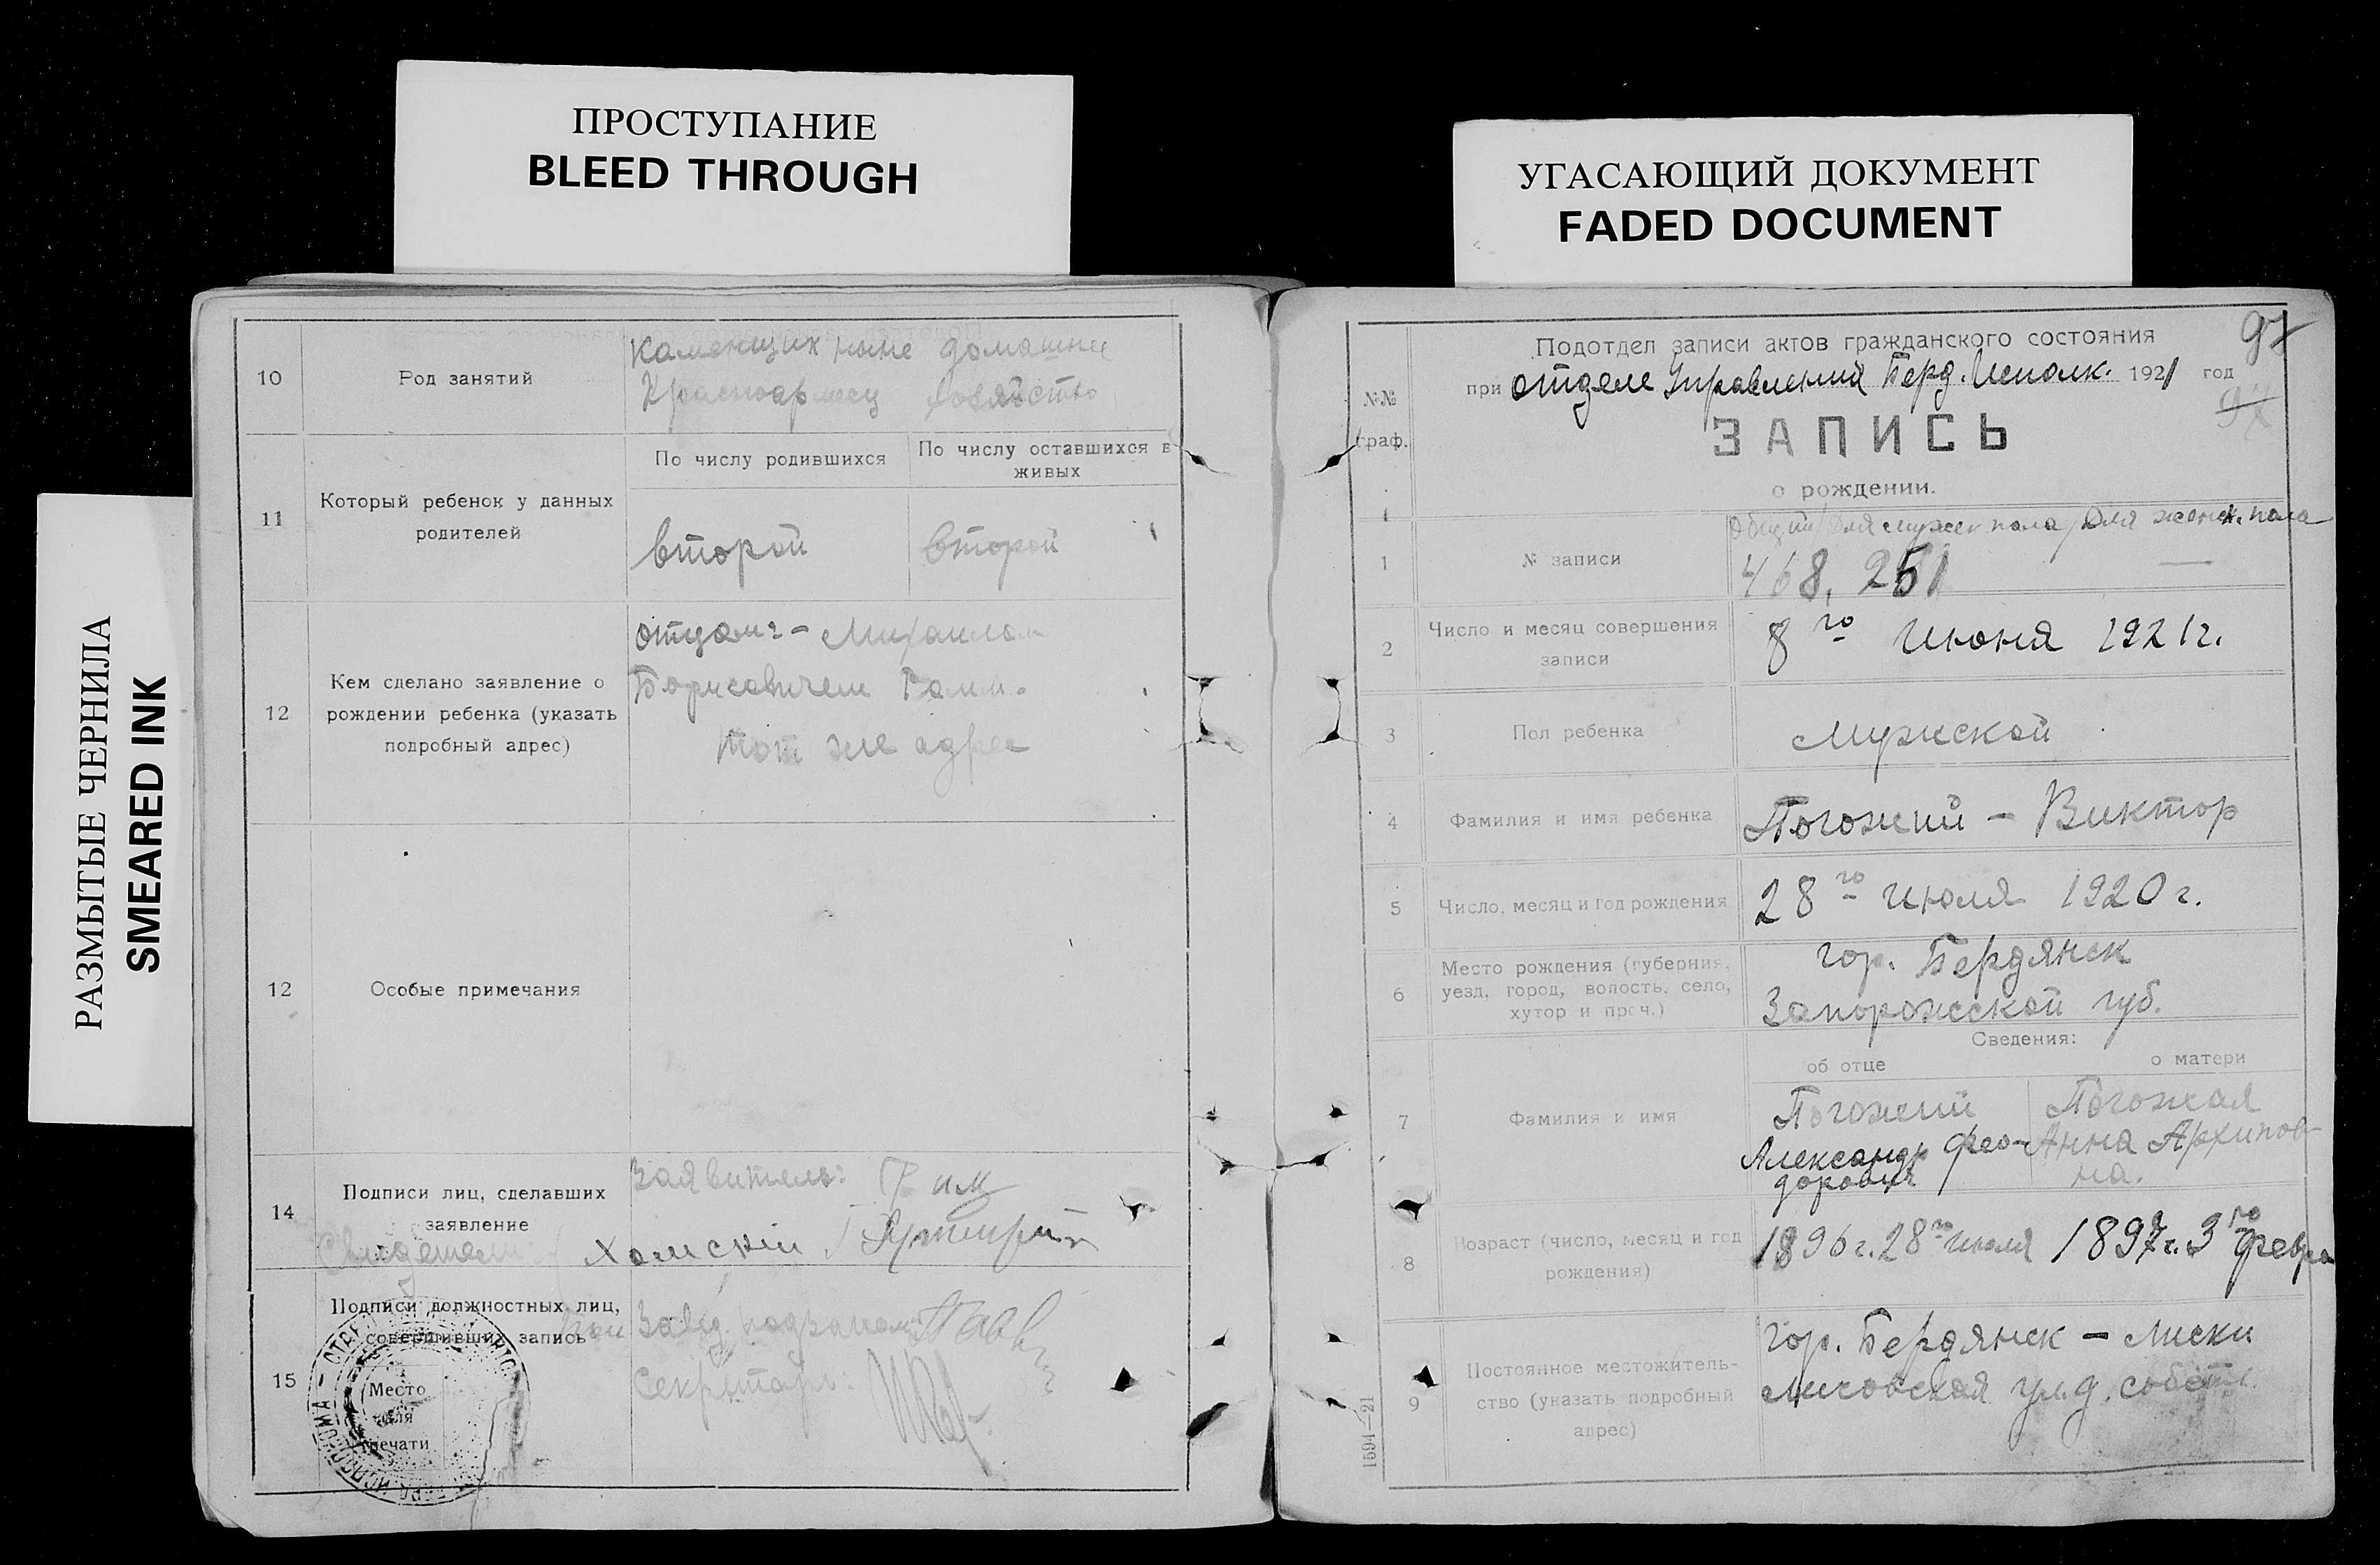 ПРОСТУПАНИЕ
BLEED THROUGH
УГАСАЮЩИЙ ДОКУМЕНТ
FADED DOCUMENT
РАЗМЫТЫЕ ЧЕРНИЛА
SMEARED INK
10
Род занятий
Каменщик ныне домашнее
Красноармеец хозяйство
11
Который ребенок у данных
родителей
По числу родившихся
По числу оставшихся в
живых
второй
второй
12
Кем сделано заявление о
рождении ребенка (указать
подробный адрес)
отцом - Михаилом
Борисовичем
тот же адрес
12
Особые примечания
14
Подписи лиц, сделавших
заявление
Свидетели
Заявитель:
Хомскiй
15
Подписи должностных лиц,
совершивших запись
Место
для
печати
Завед.
Секретарь:
97
97
Подотдел записи актов гражданского состояния
при отделе Управления Берд. Исполк. 1921 год
№№
граф.
ЗАПИСЬ
о рождении.
1
№ записи
Общий / Для мужск пола / Для женск. пола
468, 251 —
2
Число и месяц совершения
записи
8го Июня 1921г.
3
Пол ребенка
Мужской
4
Фамилия и имя ребенка
Погожий - Виктор
5
Число, месяц и год рождения
28го Июля 1920г.
6
Место рождения (губерния,
уезд, город, волость, село,
хутор и проч.)
гор. Бердянск
Запорожской губ.
Сведения:
об отце
о матери
7
Фамилия и имя
Погожий
Александр Фео-
дорович
Погожая
Анна Архипов-
на.
8
Возраст (число, месяц и год
рождения)
1896г. 28го Июля
1897г. 3го Февра
9
Постоянное местожитель-
ство (указать подробный
адрес)
гор. Бердянск - Лиски
ул. д. собств.
1594—21